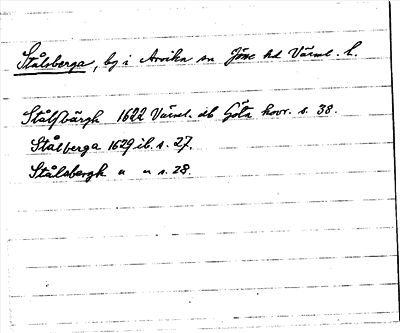 Stålsberga, by i Arvika sn Jösse hd Värml. l.
Stålsbärgh 1622 Värml. db Göta hovr. s. 38.
Stålberga 1629 ib. s. 27.
Stålsbergh " " s. 28.